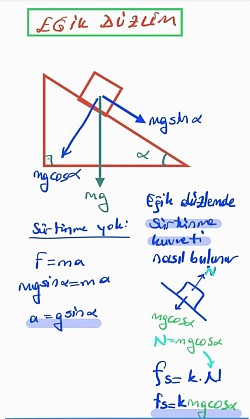 EĞİK DÜZLEM
mgsinα
α
mgcosα
mg
Sürtünme yok:
F = ma
mgsinα = ma
a = gsinα
Eğik düzlemde
sürtünme
kuvveti
nasıl bulunur
N
mgcosα
N = mgcosα
fs = k.N
fs = kmgcosα